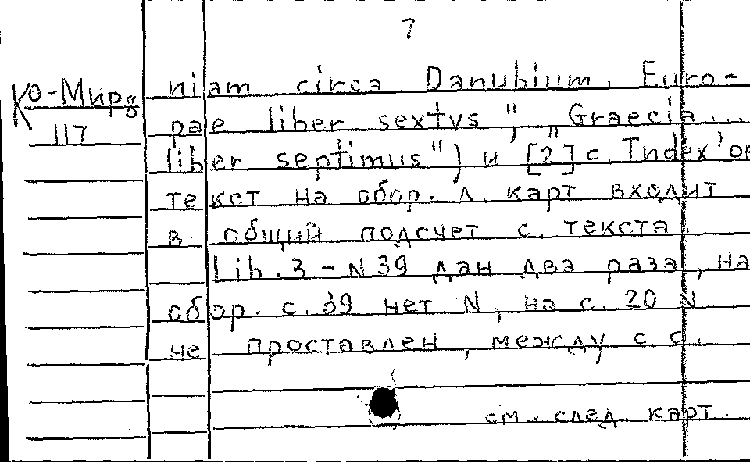 7
niam circa Danubium. Euro-
Ко-Мир8 pae liber sextus", „Graecia...
117 liber septimus") и [2] с. Index'ов
текст на обор. л. карт входит
в общий подсчет с. текста.
Lib. 3 - N 39 дан два раза, на
обор. с. 39 нет N, на с. 20 N
не проставлен, между с.с.
см. след. карт.